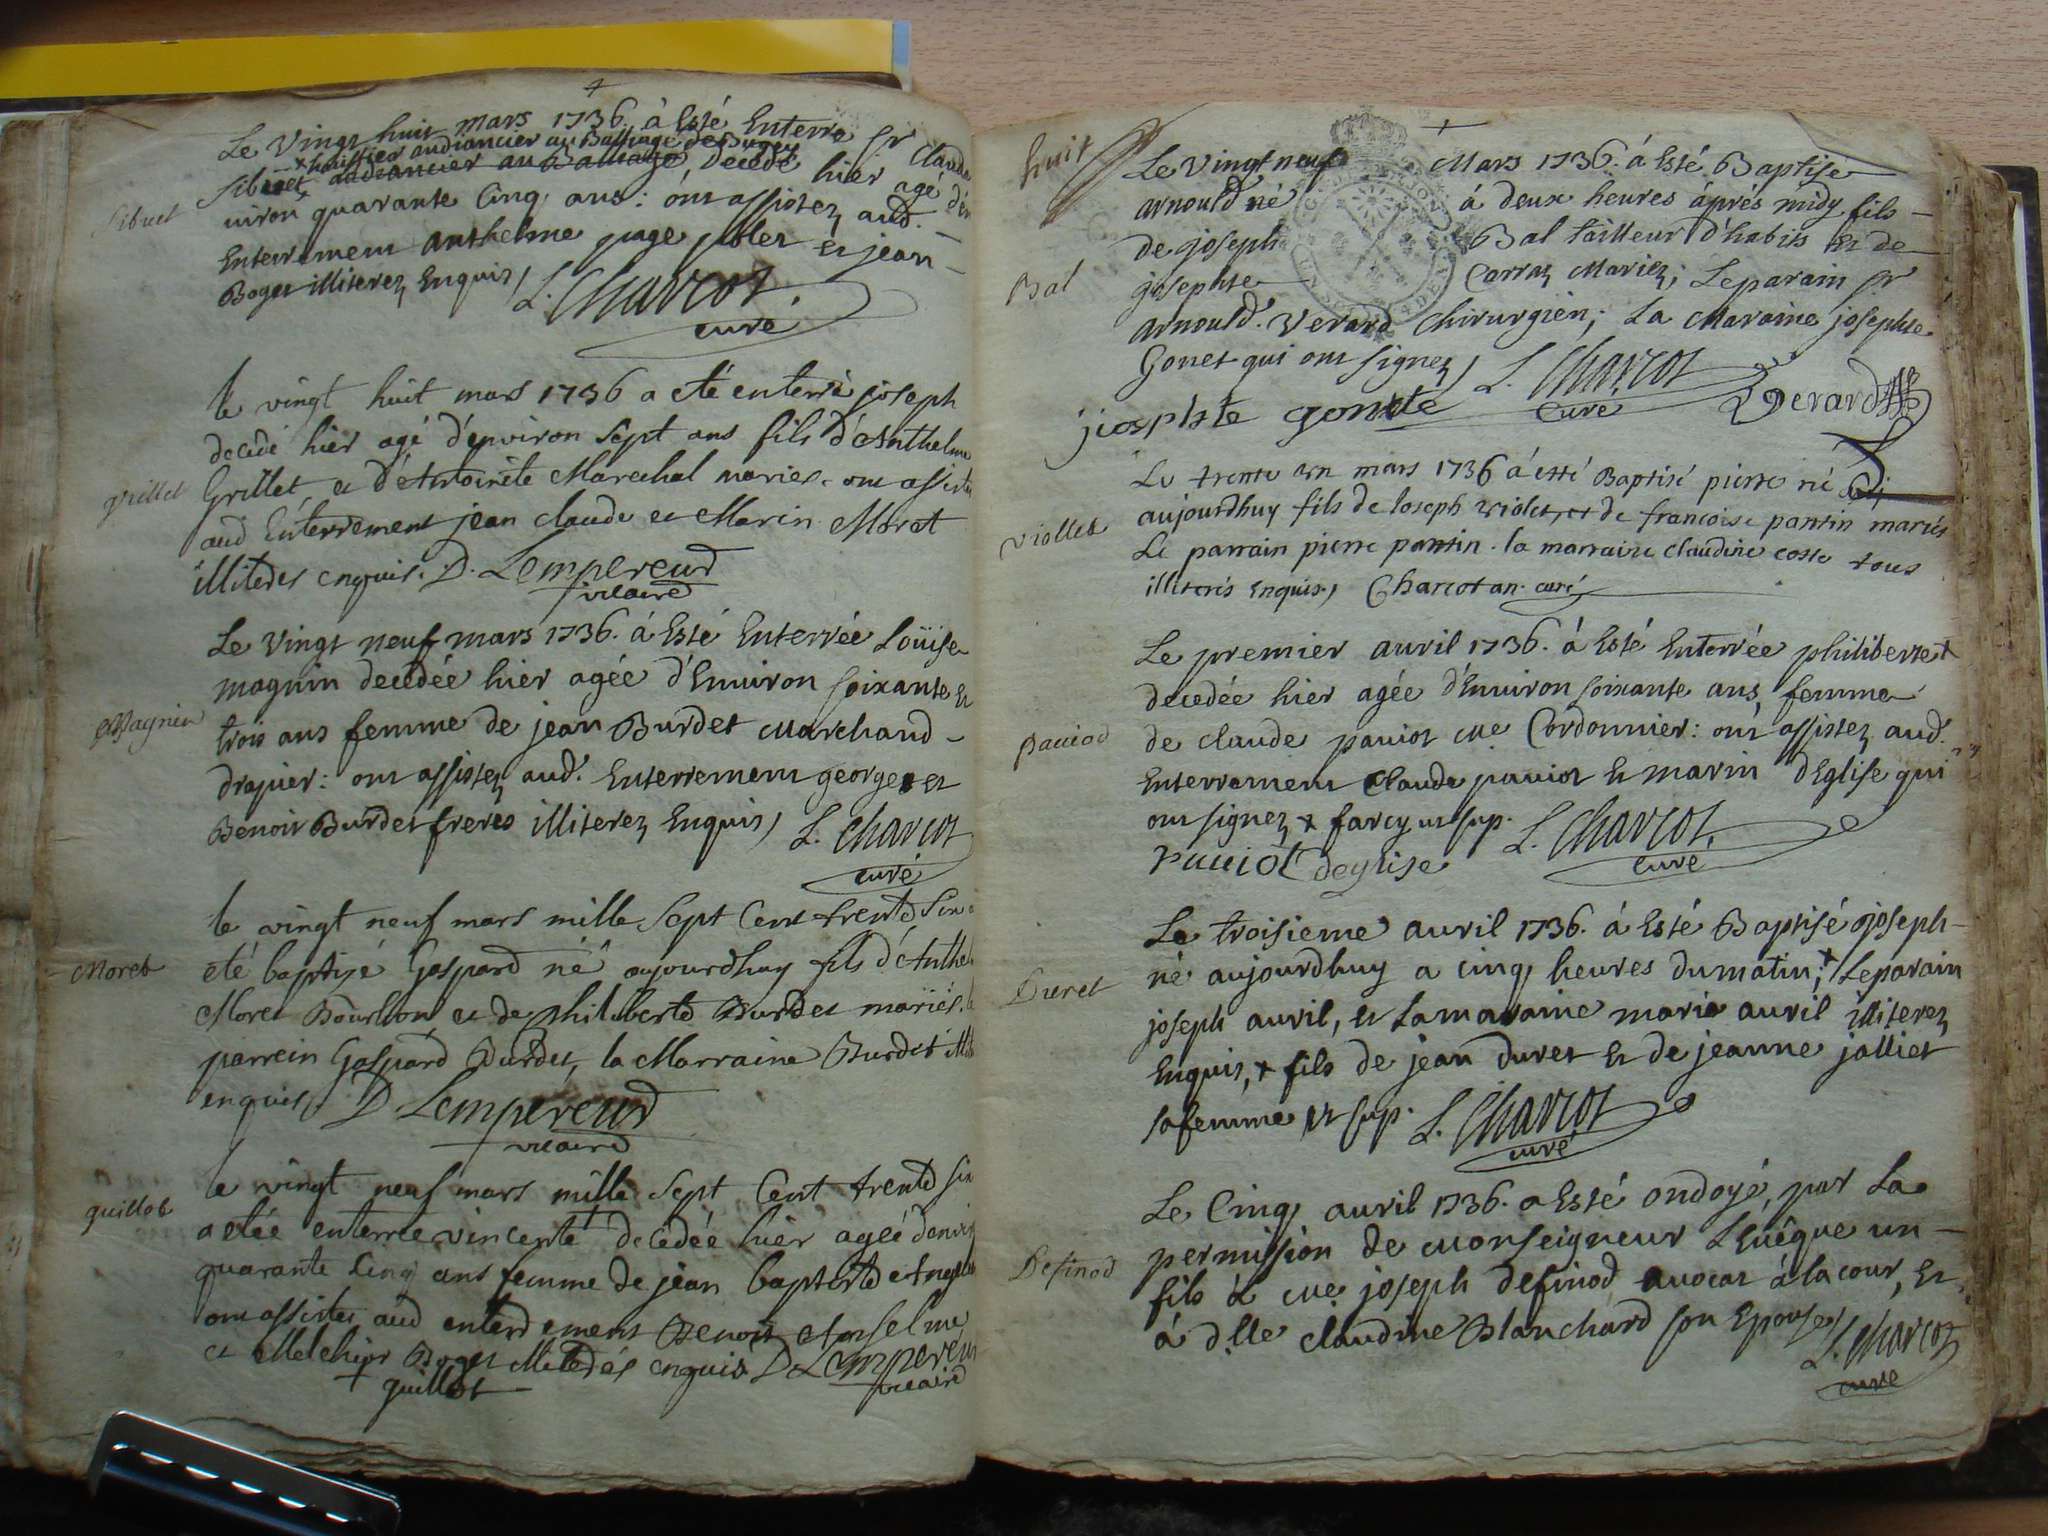 Le vingt huit mars 1736. à Esté Enterré sr Claude
x huissier audiancier au Balliage de Bugey
Sibuet, audiancier au Balliage, decedé hier agé d'en
Sibuet
uiron quarante Cinq ans: ont assistez aud.
Enterrement anthelme page potler et jean
Boget illiterez Enquis, L. Charcot.
curé
le vingt huit mars 1736 a eté enterré joseph
decedé hier agé d'environ sept ans fils d'Anthelme
Grillet
Grillet, et d'Antoinete Marechal mariés. ont assistes
aud Enterrement jean claude et Marin Moret
illiterés enquis. D. Lempereur
vicaire
Le vingt neuf mars 1736. à Esté Enterrée Loüise
magnin decedée hier agée d'Enuiron soixante et
Magnin
trois ans femme de jean Burdet Marchand
drapier: ont assistez aud. Enterrement george et
Benoit Burdet freres illiterez Enquis, L. Charcot
curé
le vingt neuf mars mille sept Cent trente six a
Moret
eté baptizé Gaspard né aujourdhuy fils d'Anthel
Moret Bourbon et de philiberte Burdet mariés. le
parrein Gaspard Burdet, la Marraine Burdet illit
enquis. D Lempereur
vicaire
le vingt neuf mars mille sept Cent trente six
guillot
a etée enterrée vincente + decedée hier agée denvir
quarante cinq ans femme de jean baptiste
ont assistes aud enterrement Benoit Anselme
et Melchior Boget illiterés enquis D Lempereur
+ guillot
vicaire
huit
Le vingt neuf Mars 1736. à Esté Baptisé
arnould né à deux heures áprés midy fils
de joseph Bal tailleur d'habits et de
Bal
josephte Carraz Mariez; Le parain sr
arnould Verard chirurgien; La Maraine josephte
Gonet qui ont signez, L. Charcot
curé
josephte gonete Verard
Le trente un mars 1736 à etté Baptisé pierre né
aujourdhuy fils de Joseph violet, et de francoise pantin mariés
viollet
Le parrain pierre pantin. la marraine claudine coste tous
illiterés enquis, Charcot an. curé
Le premier auril 1736. à Esté Enterrée philiberte +
decedée hier agée d'Enuiron soixante ans, femme
Pauiod
de claude pauiot Me Cordonnier: ont assistez aud.
Enterrement claude pauiot et marin d'Eglise qui
ont signez + farcy ut sup. L. Charcot
curé
Pauiot deglise
Le troisieme auril 1736. à Esté Baptisé joseph
né aujourdhuy a cinq heures du matin; + Le parain
Duret
joseph auril, et La maraine marie auril illiterez
Enquis, + fils de jean duret et de jeanne jolliet
sa femme ut sup. L. Charcot
curé
Le Cinq auril 1736. a Esté ondoyé, par La
permission de Monseigneur L'euêque un
Definod
fils à Me joseph definod auocat à la cour, et
à d.lle claudine Blanchard son Epouse,
L. Charcot
curé